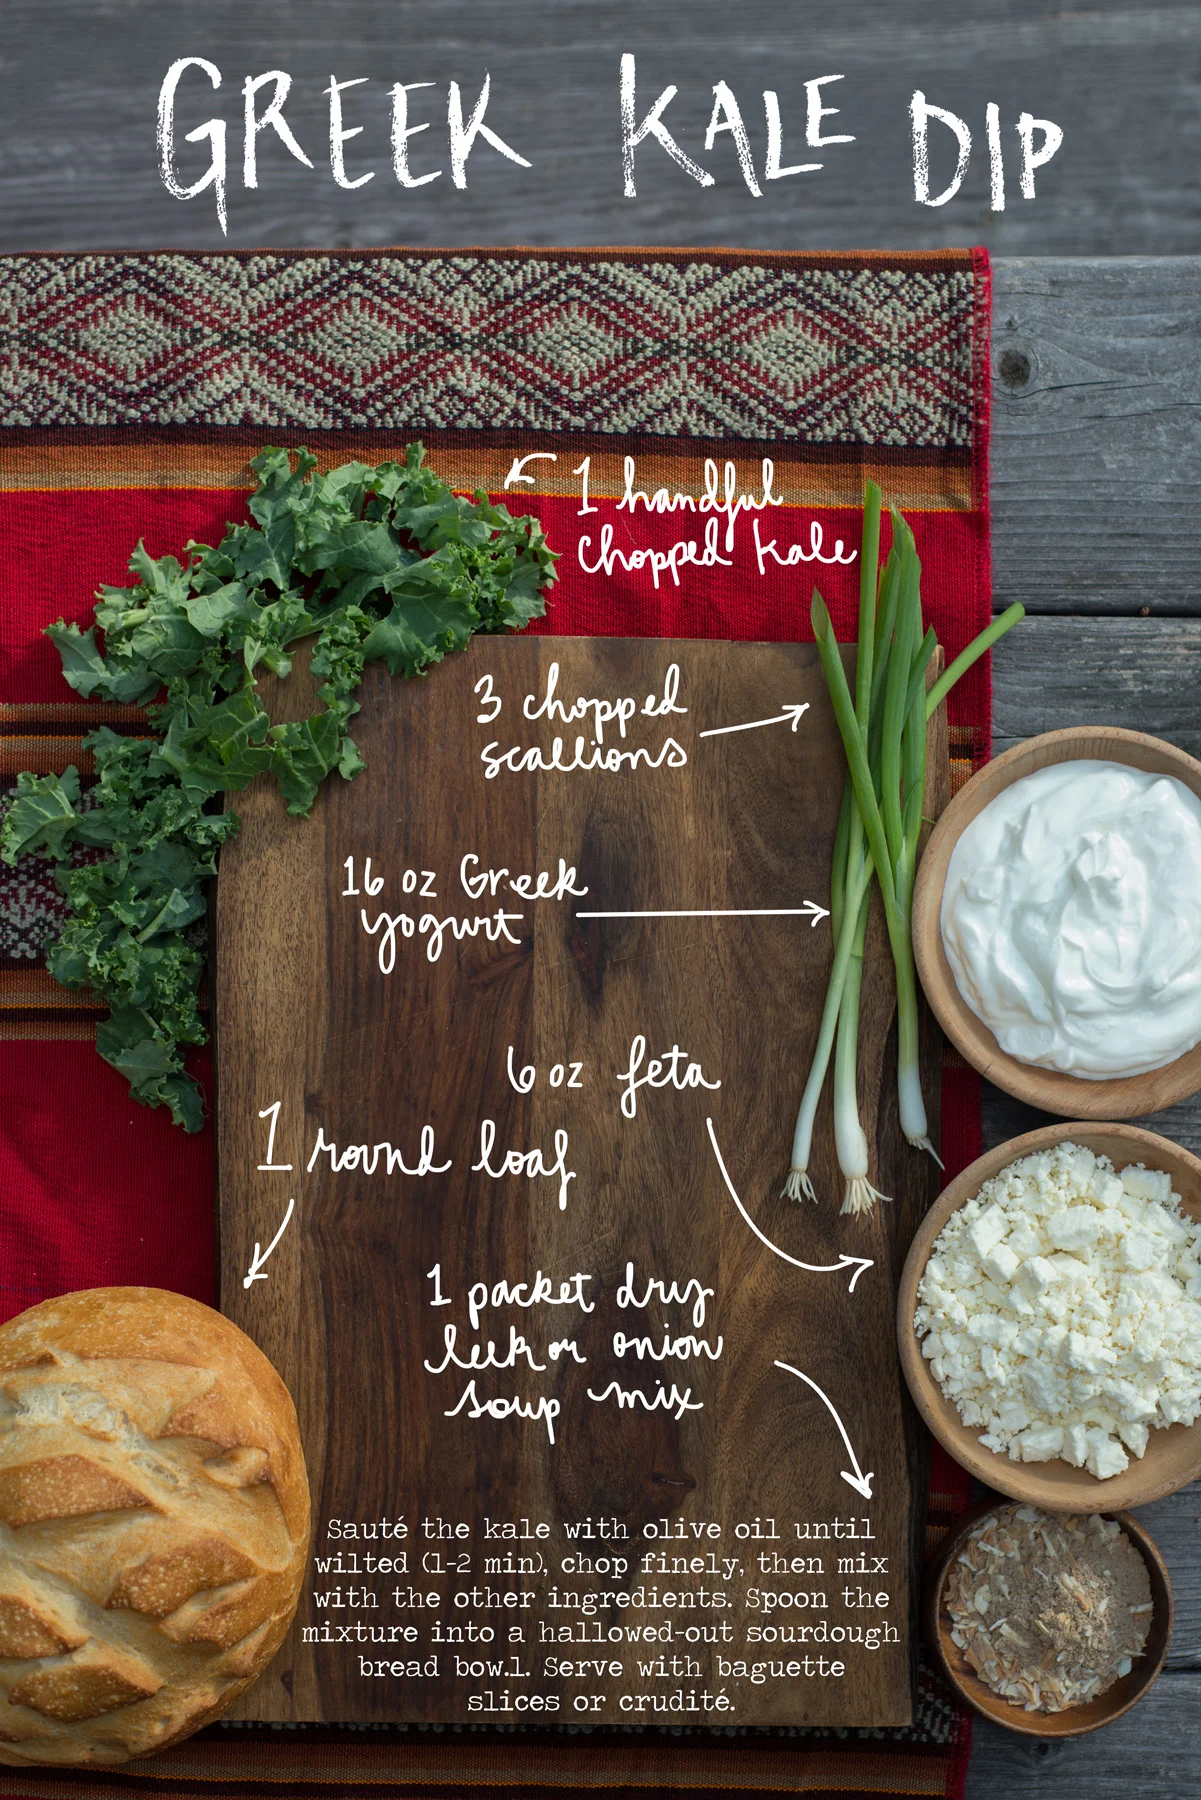 GREEK KALE DIP
1 handful
chopped kale
3 chopped
scallions
16 oz Greek
yogurt
6 oz feta
1 round loaf
1 packet dry
leek or onion
soup mix
Sauté the kale with olive oil until
wilted (1-2 min), chop finely, then mix
with the other ingredients. Spoon the
mixture into a hallowed-out sourdough
bread bow.l. Serve with baguette
slices or crudité.